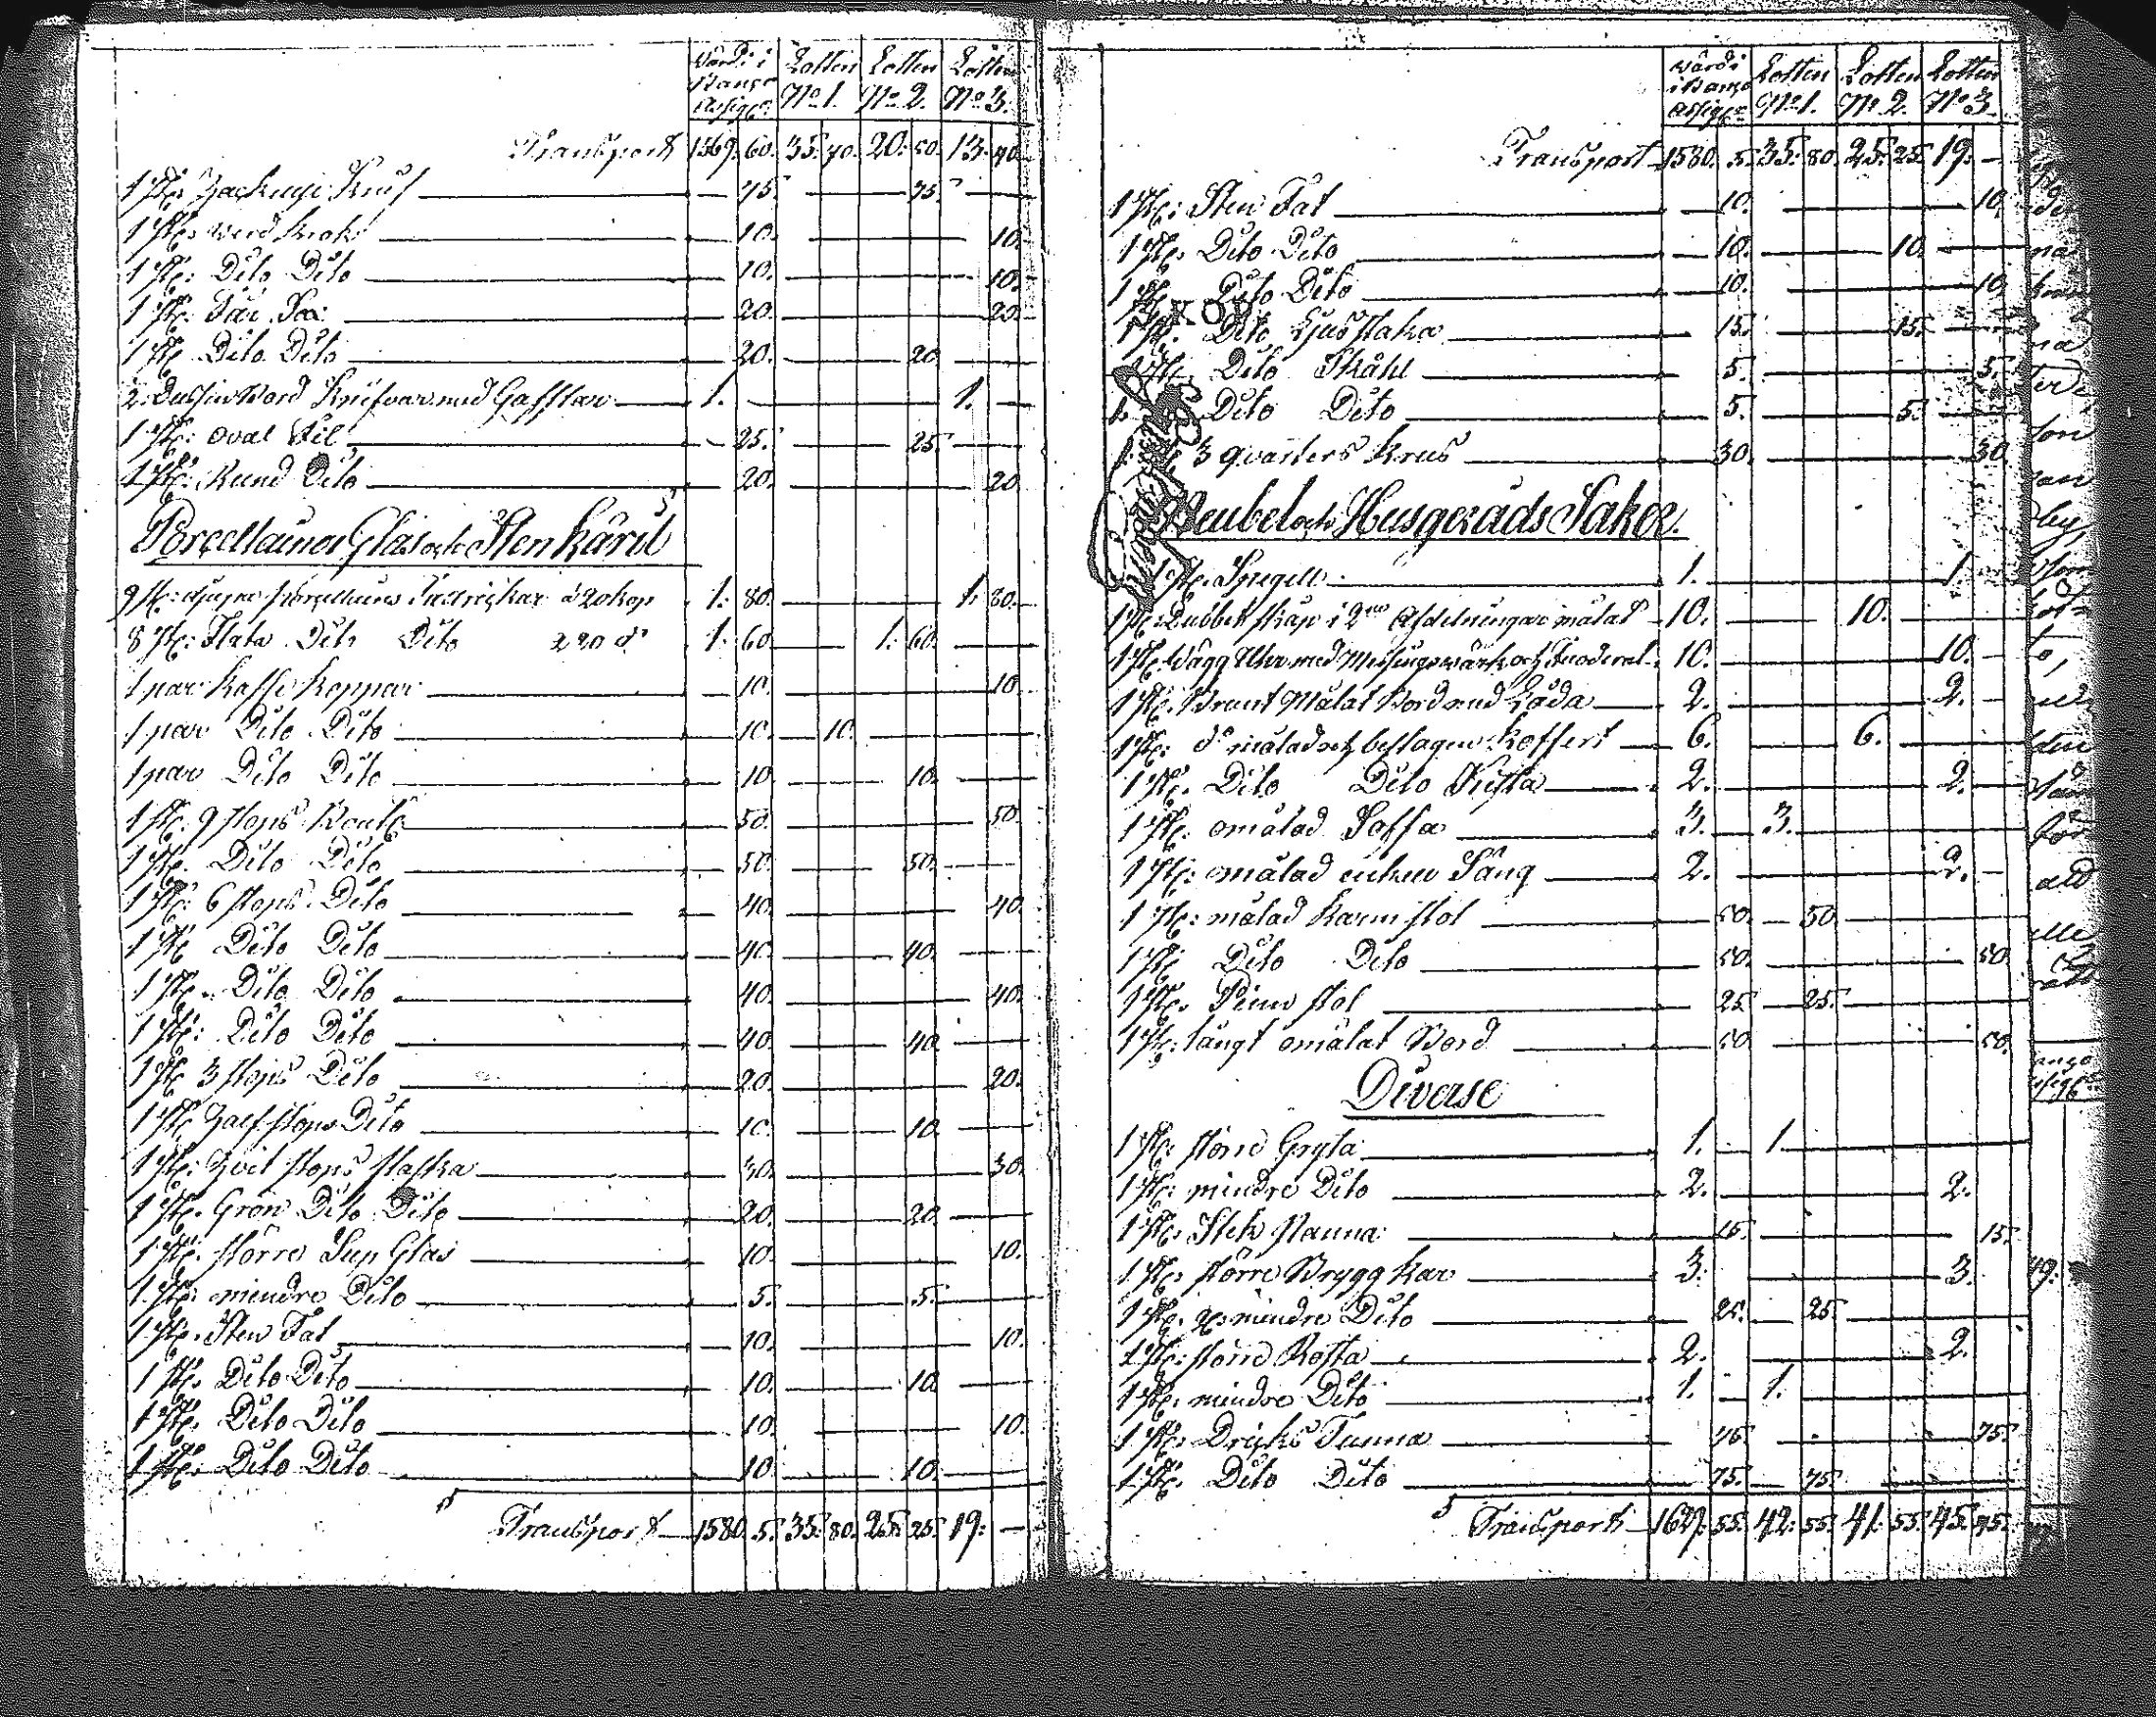 Värde i Banco Assign: Lotten No 1. Lotten No 2. Lotten No 3.
Transport 1569. 60. 35. 70. 20. 50. 13. 40.
1 St: Krus 75. 75.
1 St: 10. 10.
1 St: Dito Dito 10. 10.
1 St: Får Sax 20. 20.
1 St: Dito Dito 20. 20
2 Dussin Bord Knifvar med Gafflar 1. 1.
1 St: oval Fil 25. 25.
1 St: Rund Dito 20. 20
Porcellainer Glas och Stenkäril
9 St: djupa porcellains Tallrickar à 20 kop 1. 80. 1. 80.
8 St: flata Dito Dito à 20 do 1. 60 1. 60.
1 par Kaffe Koppar 10. 10
1 par Dito Dito 10. 10.
1 par Dito Dito 10. 10.
1 St: 9 stops Boutl 50. 50.
1 St: Dito Dito 50. 50.
1 St: 6 stops Dito 40. 40.
1 St: Dito Dito 40. 40.
1 St: Dito Dito 40. 40.
1 St: Dito Dito 40. 40.
1 St: 3 stops Dito 20. 20.
1 St: Half stops Dito 10. 10.
1 St: Hvit stops flaska 30. 30.
1 St: Grön Dito Dito 20. 20.
1 St: större Sup Glas 10. 10.
1 St: mindre Dito 5. 5.
1 St: Sten Fat 10. 10.
1 St: Dito Dito 10. 10.
1 St: Dito Dito 10. 10.
1 St: Dito Dito 10. 10.
Transport 1580. 5. 35. 80. 25. 25. 19. —
Värde i Banco Assign: Lotten No 1. Lotten No 2. Lotten No 3.
Transport 1580. 5. 35. 80. 25. 25. 19. —
1 St: Sten Fat 10. 10.
1 St: Dito Dito 10. 10.
1 St: Dito Dito 10. 10
1 St: Dito Ljusstaka 15. 15.
1 St: Dito Skåhl 5. 5.
1 Dito Dito 5. 5.
1 3 qvarters Krus 30. 30
Meubel och Husgeråds Saker.
1 St: Spegell 1. 1.
1 St: Dubbelt skåp i 2ne Afdelningar målat 10. 10.
1 St: Vägg Uhr med Messingsvärk och Fuoderal 10. 10.
1 St: Brunt Målat Bord med Låda 2. 2.
1 St: do målad och beslagen Koffert 6. 6.
1 St: Dito Dito Kista 2. 2.
1 St: omålad Soffa 3. 3.
1 St: omålad enkel Säng 2. 2.
1 St: målad Karm stol 50. 50
1 St: Dito Dito 50. 50
1 St: Pinn stol 25 25.
1 St: långt omålat Bord 50 50.
Diverse
1 St: större Gryta 1. 1.
1 St: mindre Dito 2. 2.
1 St: Stek Panna 15. 15.
1 St: större Brygg Kar 3. 3.
1 St: mindre Dito 25. 25
1 St: större Rosta 2. 2.
1 St: mindre Dito 1. 1.
1 St: Dricks Tunna 75. 75.
1 St: Dito Dito 75. 75.
Transport 1627. 55. 42. 55. 41. 55. 45. 75.